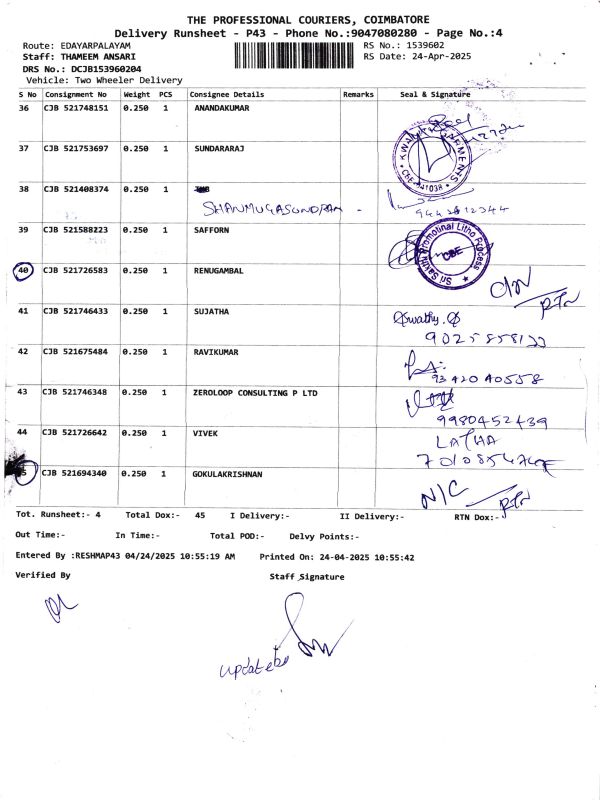 THE PROFESSIONAL COURIERS, COIMBATORE
Delivery Runsheet - P43 - Phone No.:9047080280 - Page No.:4
Route: EDAYARPALAYAM RS No.: 1539602
Staff: THAMEEM ANSARI RS Date: 24-Apr-2025
DRS No.: DCJB153960204
Vehicle: Two Wheeler Delivery
S No Consignment No Weight PCS Consignee Details Remarks Seal & Signature
36 CJB 521748151 0.250 1 ANANDAKUMAR
37 CJB 521753697 0.250 1 SUNDARARAJ
GARMENTS CBE-641038
38 CJB 521408374 0.250 1
SHANMUGASUNDRAM
39 CJB 521588223 0.250 1 SAFFORN
Sri Sakthi Promotional Litho Process CBE
40 CJB 521726583 0.250 1 RENUGAMBAL
D/N RTN
41 CJB 521746433 0.250 1 SUJATHA Swathy.S
42 CJB 521675484 0.250 1 RAVIKUMAR
9342040558
43 CJB 521746348 0.250 1 ZEROLOOP CONSULTING P LTD
9980452439
44 CJB 521726642 0.250 1 VIVEK LATHA
CJB 521694340 0.250 1 GOKULAKRISHNAN
N/C RTN
Tot. Runsheet:- 4 Total Dox:- 45 I Delivery:- II Delivery:- RTN Dox:-
Out Time:- In Time:- Total POD:- Delvy Points:-
Entered By :RESHMAP43 04/24/2025 10:55:19 AM Printed On: 24-04-2025 10:55:42
Verified By Staff Signature